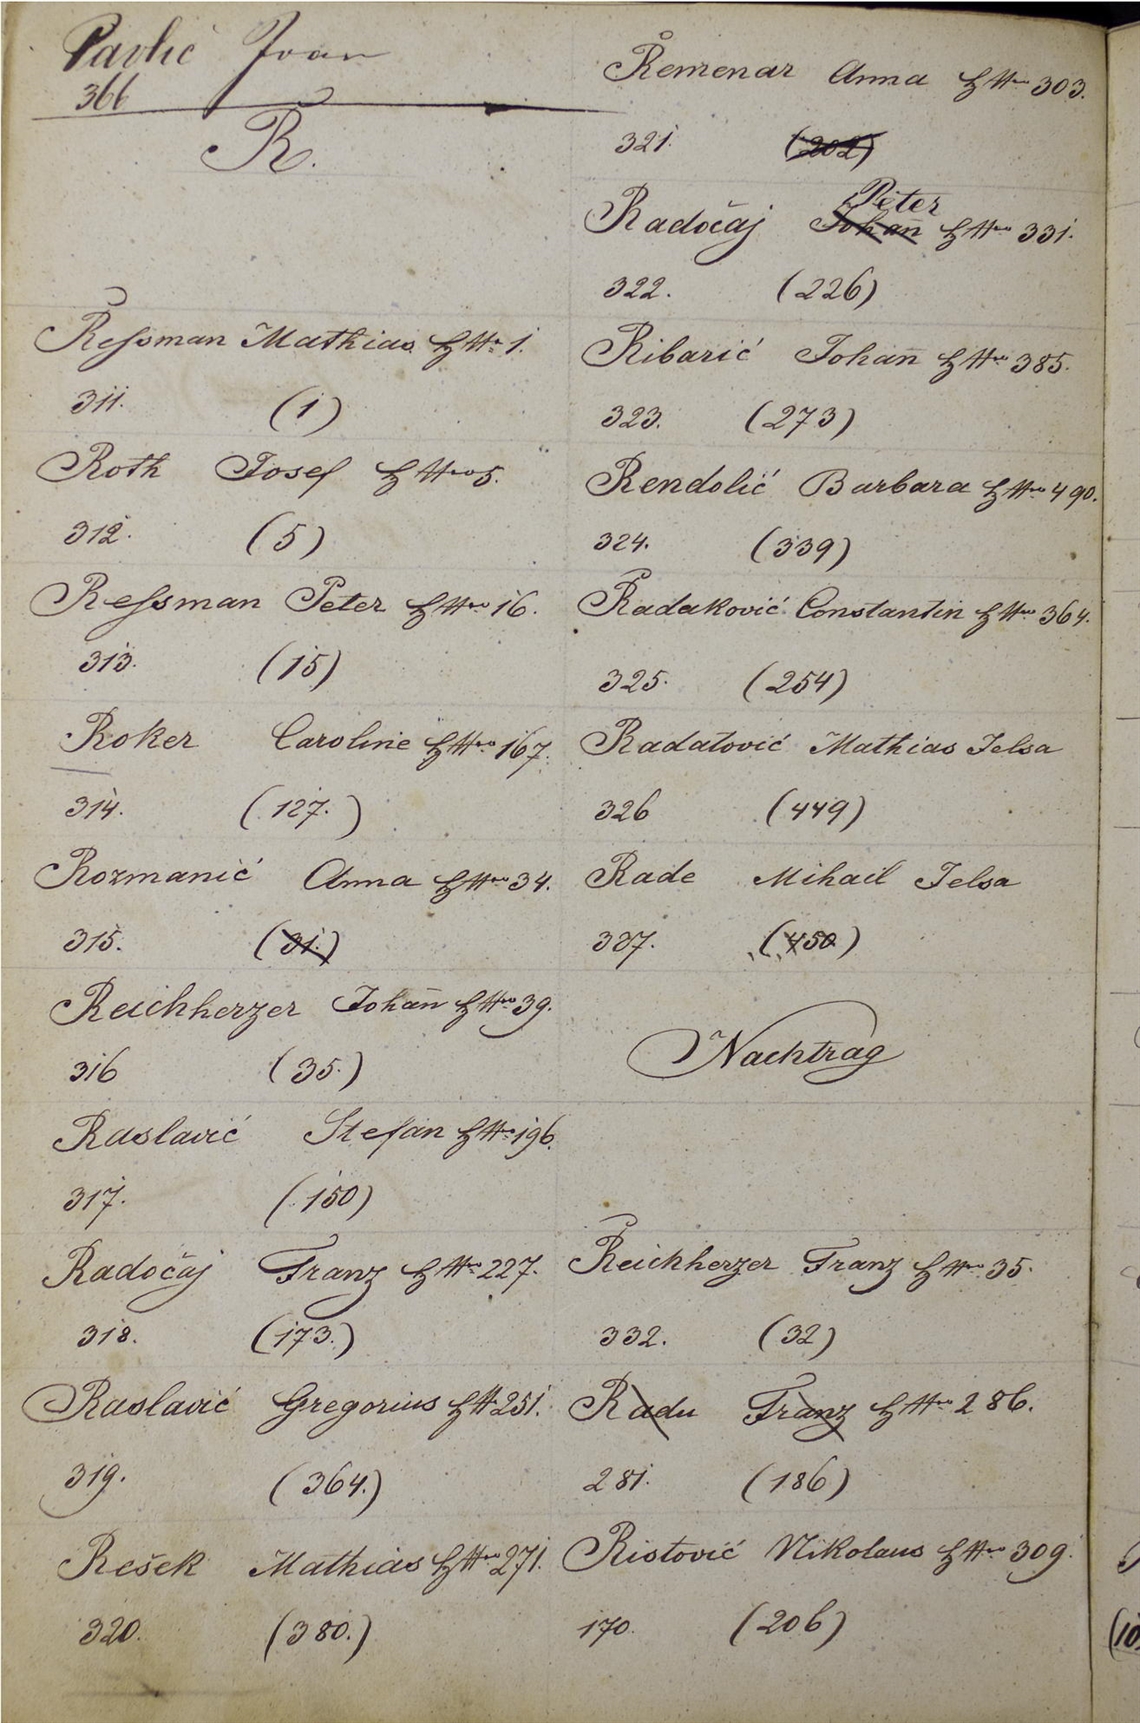 Pavlić Ivan
366
R.
Reſsman Mathias H Nr 1.
311. (1)
Roth Josef H Nro 5.
312. (5)
Reſsman Peter H Nro 16.
313. (15)
Roker Caroline H Nro 167.
314. (127.)
Rozmanić Anna H Nro 34.
315. (31.)
Reichherzer Johan̅ H Nro 39.
316 (35.)
Raslavić Stefan H Nr 196.
317. (150)
Radočaj Franz H Nro 227.
318. (173.)
Raslavić Gregorius H Nr 251.
319. (364.)
Rešek Mathias H Nro 271.
320. (380.)
Remenar Anna H Nro 303.
321. (202)
Peter
Radočaj Johan̅ H Nro 331.
322. (226)
Ribarić Johan̅ H Nro 385.
323. (273)
Rendolić Barbara H Nro 490.
324. (339)
Radaković Constantin H Nro 364.
325. (254)
Radatović Mathias Jelsa
326 (449)
Rade Mihail Jelsa
327. (450)
Nachtrag
Reichherzer Franz H Nro 35.
332. (32)
Radu Franz H Nro 286.
281. (186)
Ristović Nikolaus H Nro 309.
170. (206)
(10